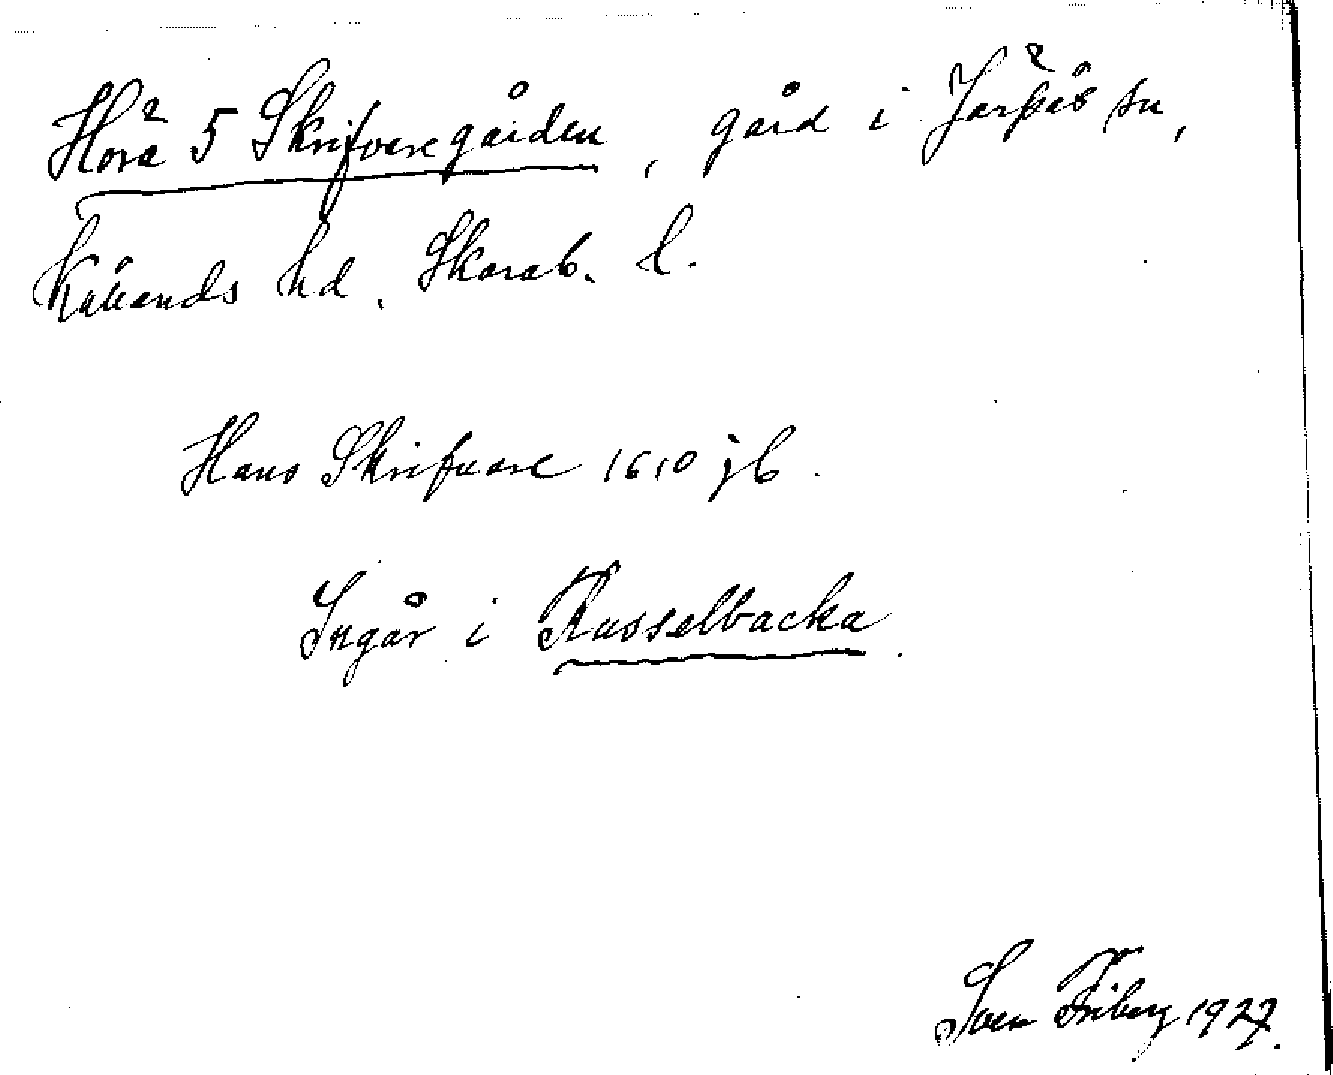 Horä 5 Skrifvaregården, gård i Järpås sn,
Kållands hd. Skarab. l.
Hans Skrifuare 1610 jb.
Ingår i Russelbacka.
Sven Friberg 1927.